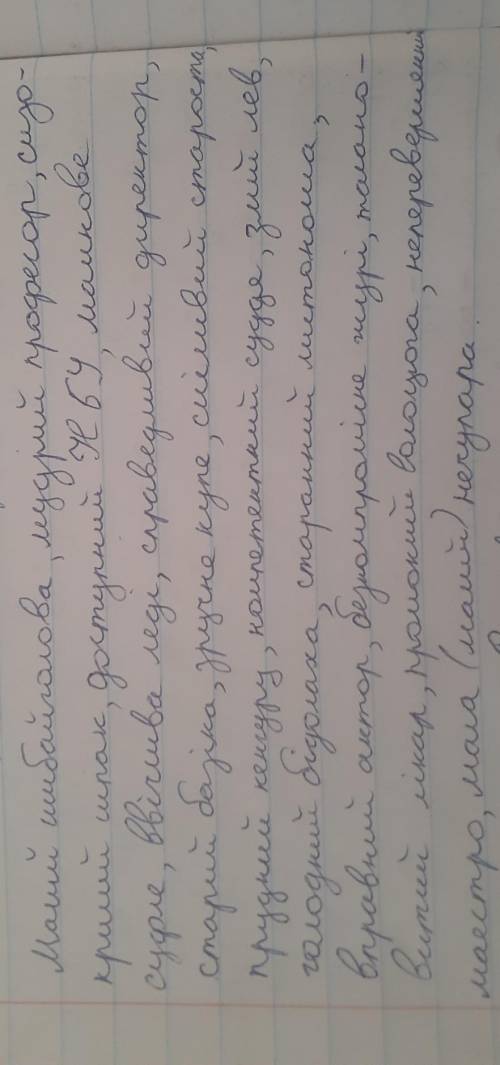 Малий шибайголова, мудрий професор, сизо-
крилий шпак, доступний НБУ, мамкове
суфле, ввічлива леді, справедливий директор,
старий базіка, зручне купе, сміливий староста,
прудкий кенгуру, компетентний суддя, злий лев,
голодний бідолаха, старанний листоноша,
вправний актор, безкомпромісне журі, талано-
витий лікар, промоклий волоцюга, неперевершений
маестро, мала (малий) нечупара.